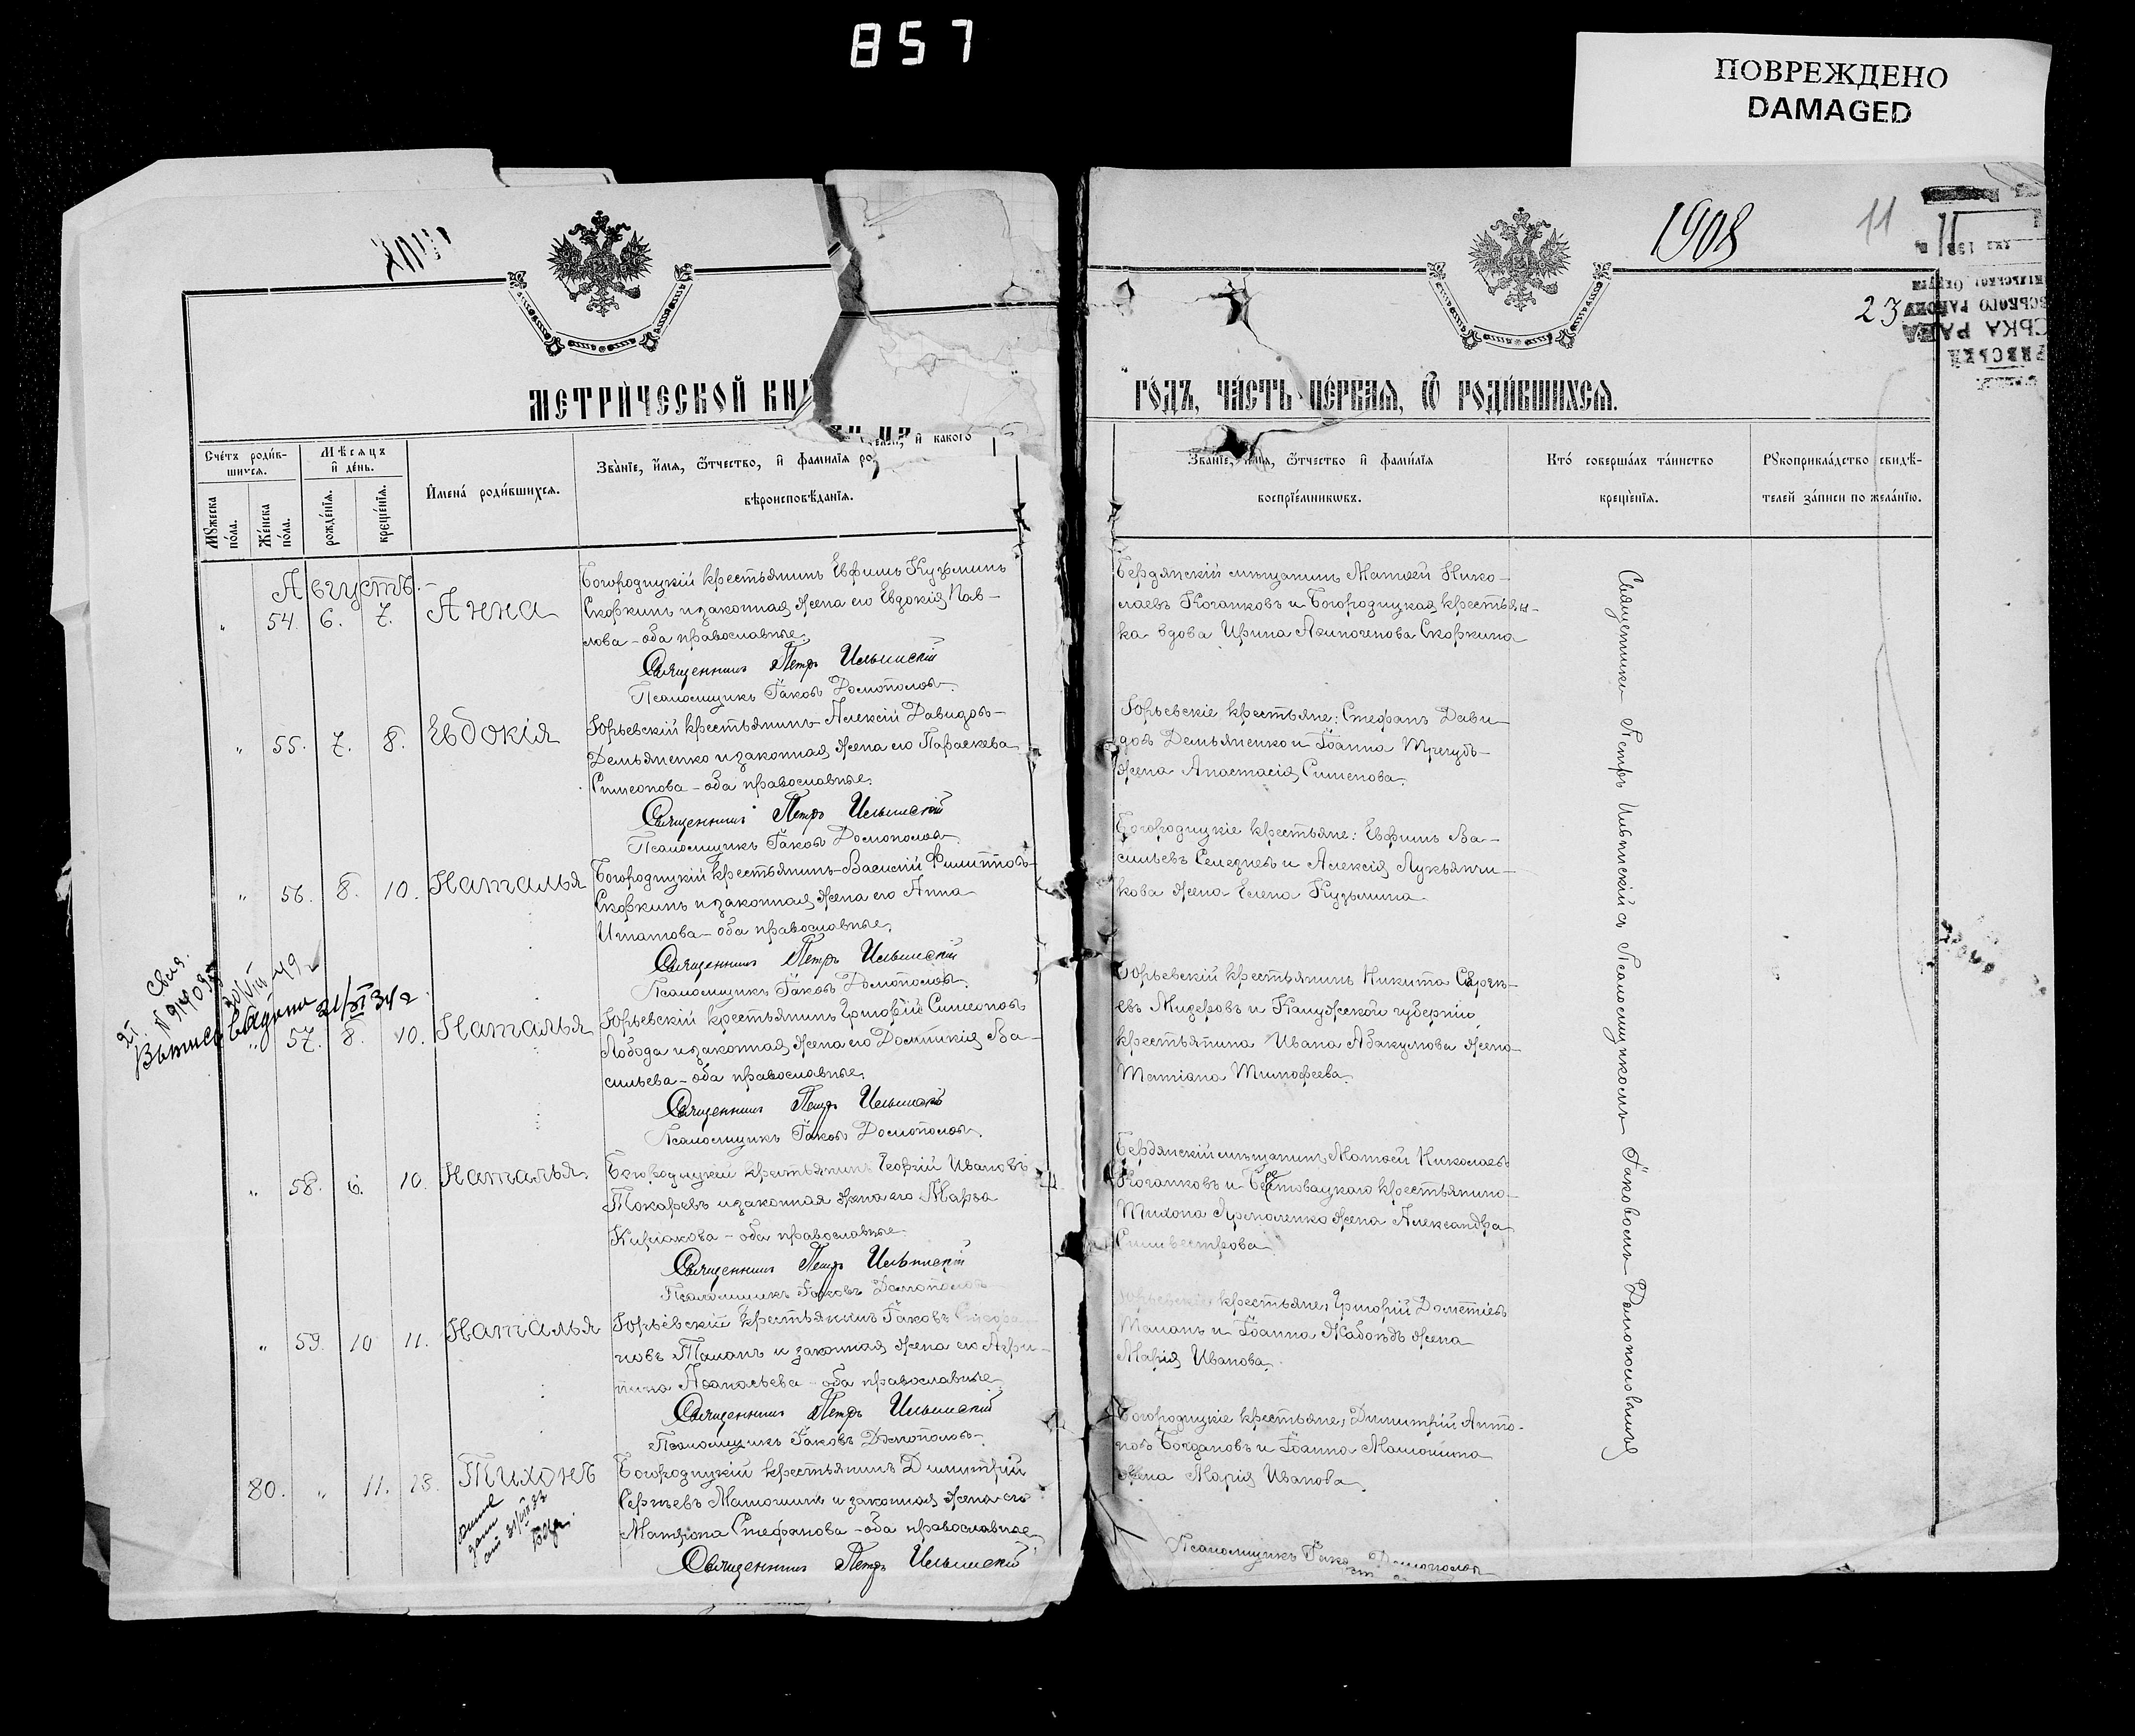 857
ПОВРЕЖДЕНО
DAMAGED
1908
11
23
МЕТРИЧЕСКОЙ КНИ
ГОДЪ, ЧАСТЬ ПЕРВАЯ, Ѿ РОДИВШИХСЯ.
Счетъ родив-
шихся.
Мѣсяцъ
и день.
Мꙋжеска
пола.
Женска
пола.
рожденія.
крещенія.
Имена родившихся.
Званіе, имя, ѿтчество, и фамилія ро
и какого
вѣроисповѣданія.
Званіе, имя, ѿтчество и фамилія
воспріемникѡвъ.
Кто совершалъ таинство
крещенія.
Рꙋкоприкладство свидѣ-
телей записи по желанію.
Августъ.
" 54. 6. 7. Анна
Богородицкій крестьянинъ Евфимъ Кузьминъ
Скоркинъ и законная жена его Евдокія Пав-
лова - оба православные.
Священникъ Петръ Ильинскій
Псаломщикъ Іаковъ Домополов
Бердянскій мѣщанинъ Матѳей Нико-
лаевъ Коганковъ и Богородицкая крестьян-
ка вдова Ирина Скоркина
" 55. 7. 8. Евдокія
Юрьевскій крестьянинъ Алексій Давидовъ
Демьяненко и законная жена его Параскева
Симеонова - оба православные.
Священникъ Петръ Ильинскій
Псаломщикъ Іаковъ Домополов
Юрьевскіе крестьяне: Стефанъ Дави-
довъ Демьяненко и Іоанна Тригубъ
жена Анастасія Симеонова.
" 56. 8. 10. Наталья
Богородицкій крестьянинъ Василій Филиттовъ
Скоркинъ и законная жена его Анна
Игнатова - оба православные.
Священникъ Петръ Ильинскій
Псаломщикъ Іаковъ Домополов
Богородицкіе крестьяне: Евфимъ Ва-
сильевъ Селезневъ и Алексія Лукьянчи-
кова жена Елена Кузьмина
" 57. 8. 10. Наталья
Юрьевскій крестьянинъ Григорій Симеоновъ
Лобода и законная жена его Домникія Ва-
сильева - оба православные.
Священникъ Петръ Ильинскій
Псаломщикъ Іаковъ Домополов
Юрьевскій крестьянинъ Никита Сергѣ-
евъ Мидеровъ и Калужской губерніи
крестьянина Ивана Абакумова жена
Татіана Тимофеева.
" 58. 6. 10. Наталья.
Богородицкій крестьянинъ Георгій Ивановъ
Токаревъ и законная жена его Марѳа
Киріакова - оба православные.
Священникъ Петръ Ильинскій
Псаломщикъ Іаковъ Домополов
Бердянскій мѣщанинъ Матѳей Николаевъ
Коганковъ и крестьянина
Тихона Ярмоленко жена Александра
Сильвестрова
" 59. 10 11. Наталья
Юрьевскій крестьянинъ Іаковъ Стефа-
новъ Таланъ и законная жена его Агри-
пина Аѳанасьева - оба православные.
Священникъ Петръ Ильинскій
Псаломщикъ Іаковъ Домополов
Юрьевскіе крестьяне: Григорій Дометіевъ
Таланъ и Іоанна жена
Марія Иванова.
80. " 11. 13. Тихонъ
Богородицкій крестьянинъ Димитрій
Сергѣевъ Матюшинъ и законная жена его
Матрона Стефанова - оба православные
Священникъ Петръ Ильинскій
Богородицкіе крестьяне: Димитрій Анто-
новъ Богдановъ и Іоанна Матюшина
жена Марія Иванова.
Псаломщикъ
Священникъ Петръ Ильинскій съ Псаломщикомъ Іаковомъ Домополовымъ